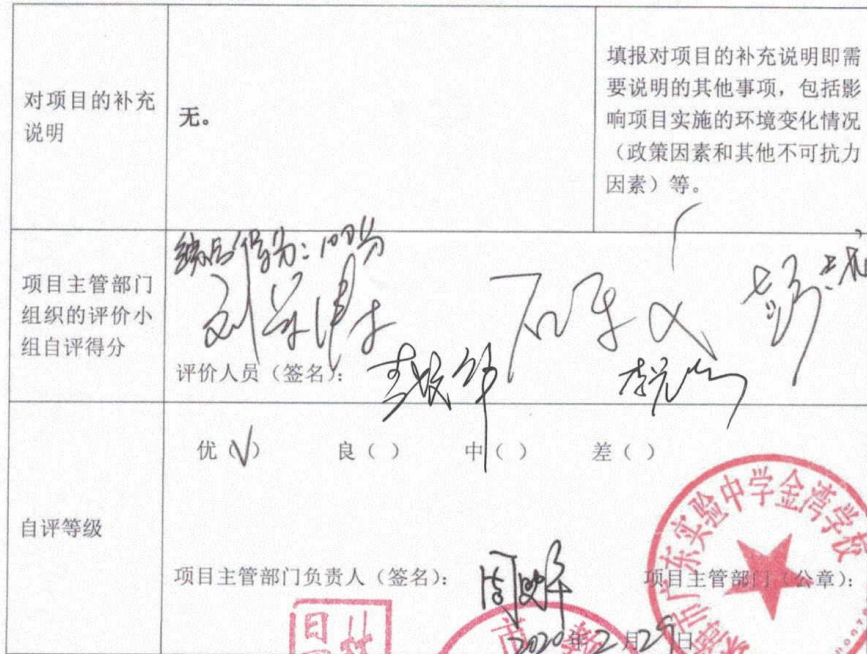 对项目的补充
说明
无。
填报对项目的补充说明即需
要说明的其他事项，包括影
响项目实施的环境变化情况
（政策因素和其他不可抗力
因素）等。
项目主管部门
组织的评价小
组自评得分
得分：100分
评价人员（签名）：
自评等级
优（√） 良（ ） 中（ ） 差（ ）
项目主管部门负责人（签名）：
项目主管部门（公章）：
2020年2月29日
广东实验中学金湾学校